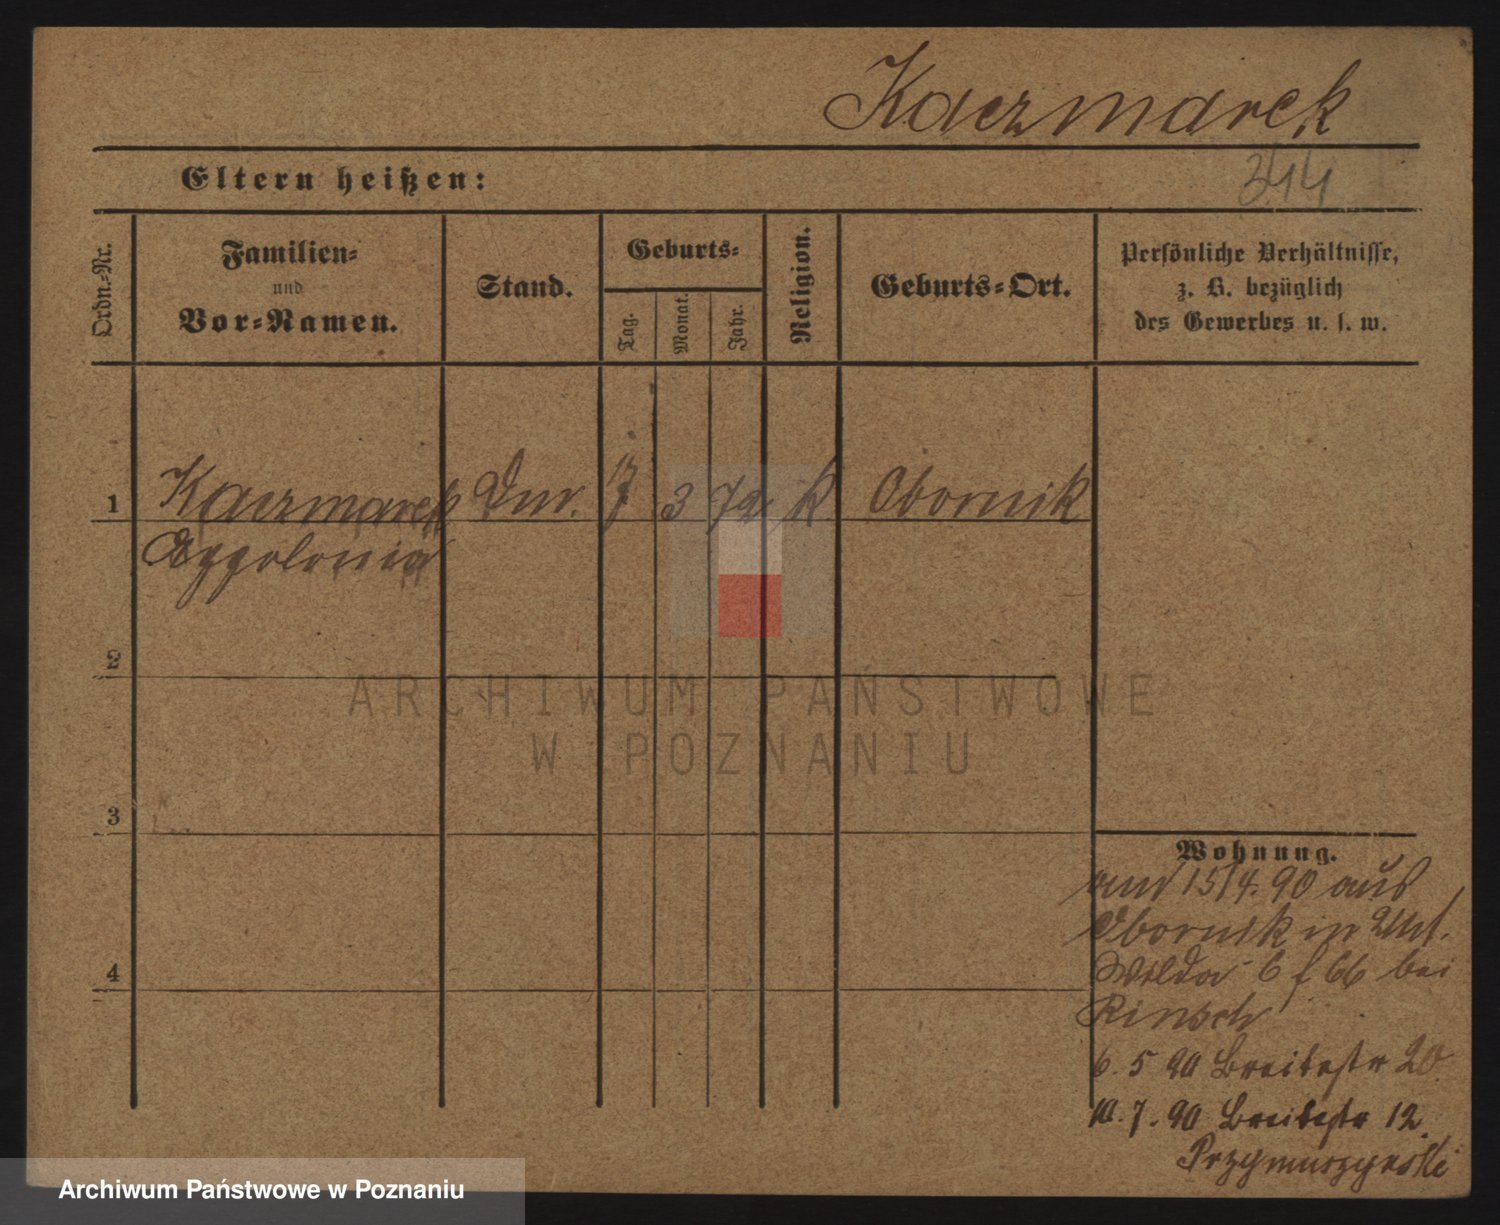 Kaczmarek
344
Eltern heißen:
Ordn.-Nr.
Familien-
und
Vor-Namen.
Stand.
Geburts-
Tag.
Monat.
Jahr.
Religion.
Geburts-Ort.
Persönliche Verhältnisse,
z. B. bezüglich
des Gewerbes u. s. w.
1 Kaczmarek 3 72 k Obornik
Appolonia
2
3
4
Wohnung.
15/4. 90 aus
Obornik in Unt.
Wilda 6 f 66 bei
Rinsch
6. 5 90 Breitestr 20
10. 7. 90 Breitestr 12
Przymuszynski
ARCHIWUM PAŃSTWOWE
W POZNANIU
Archiwum Państwowe w Poznaniu